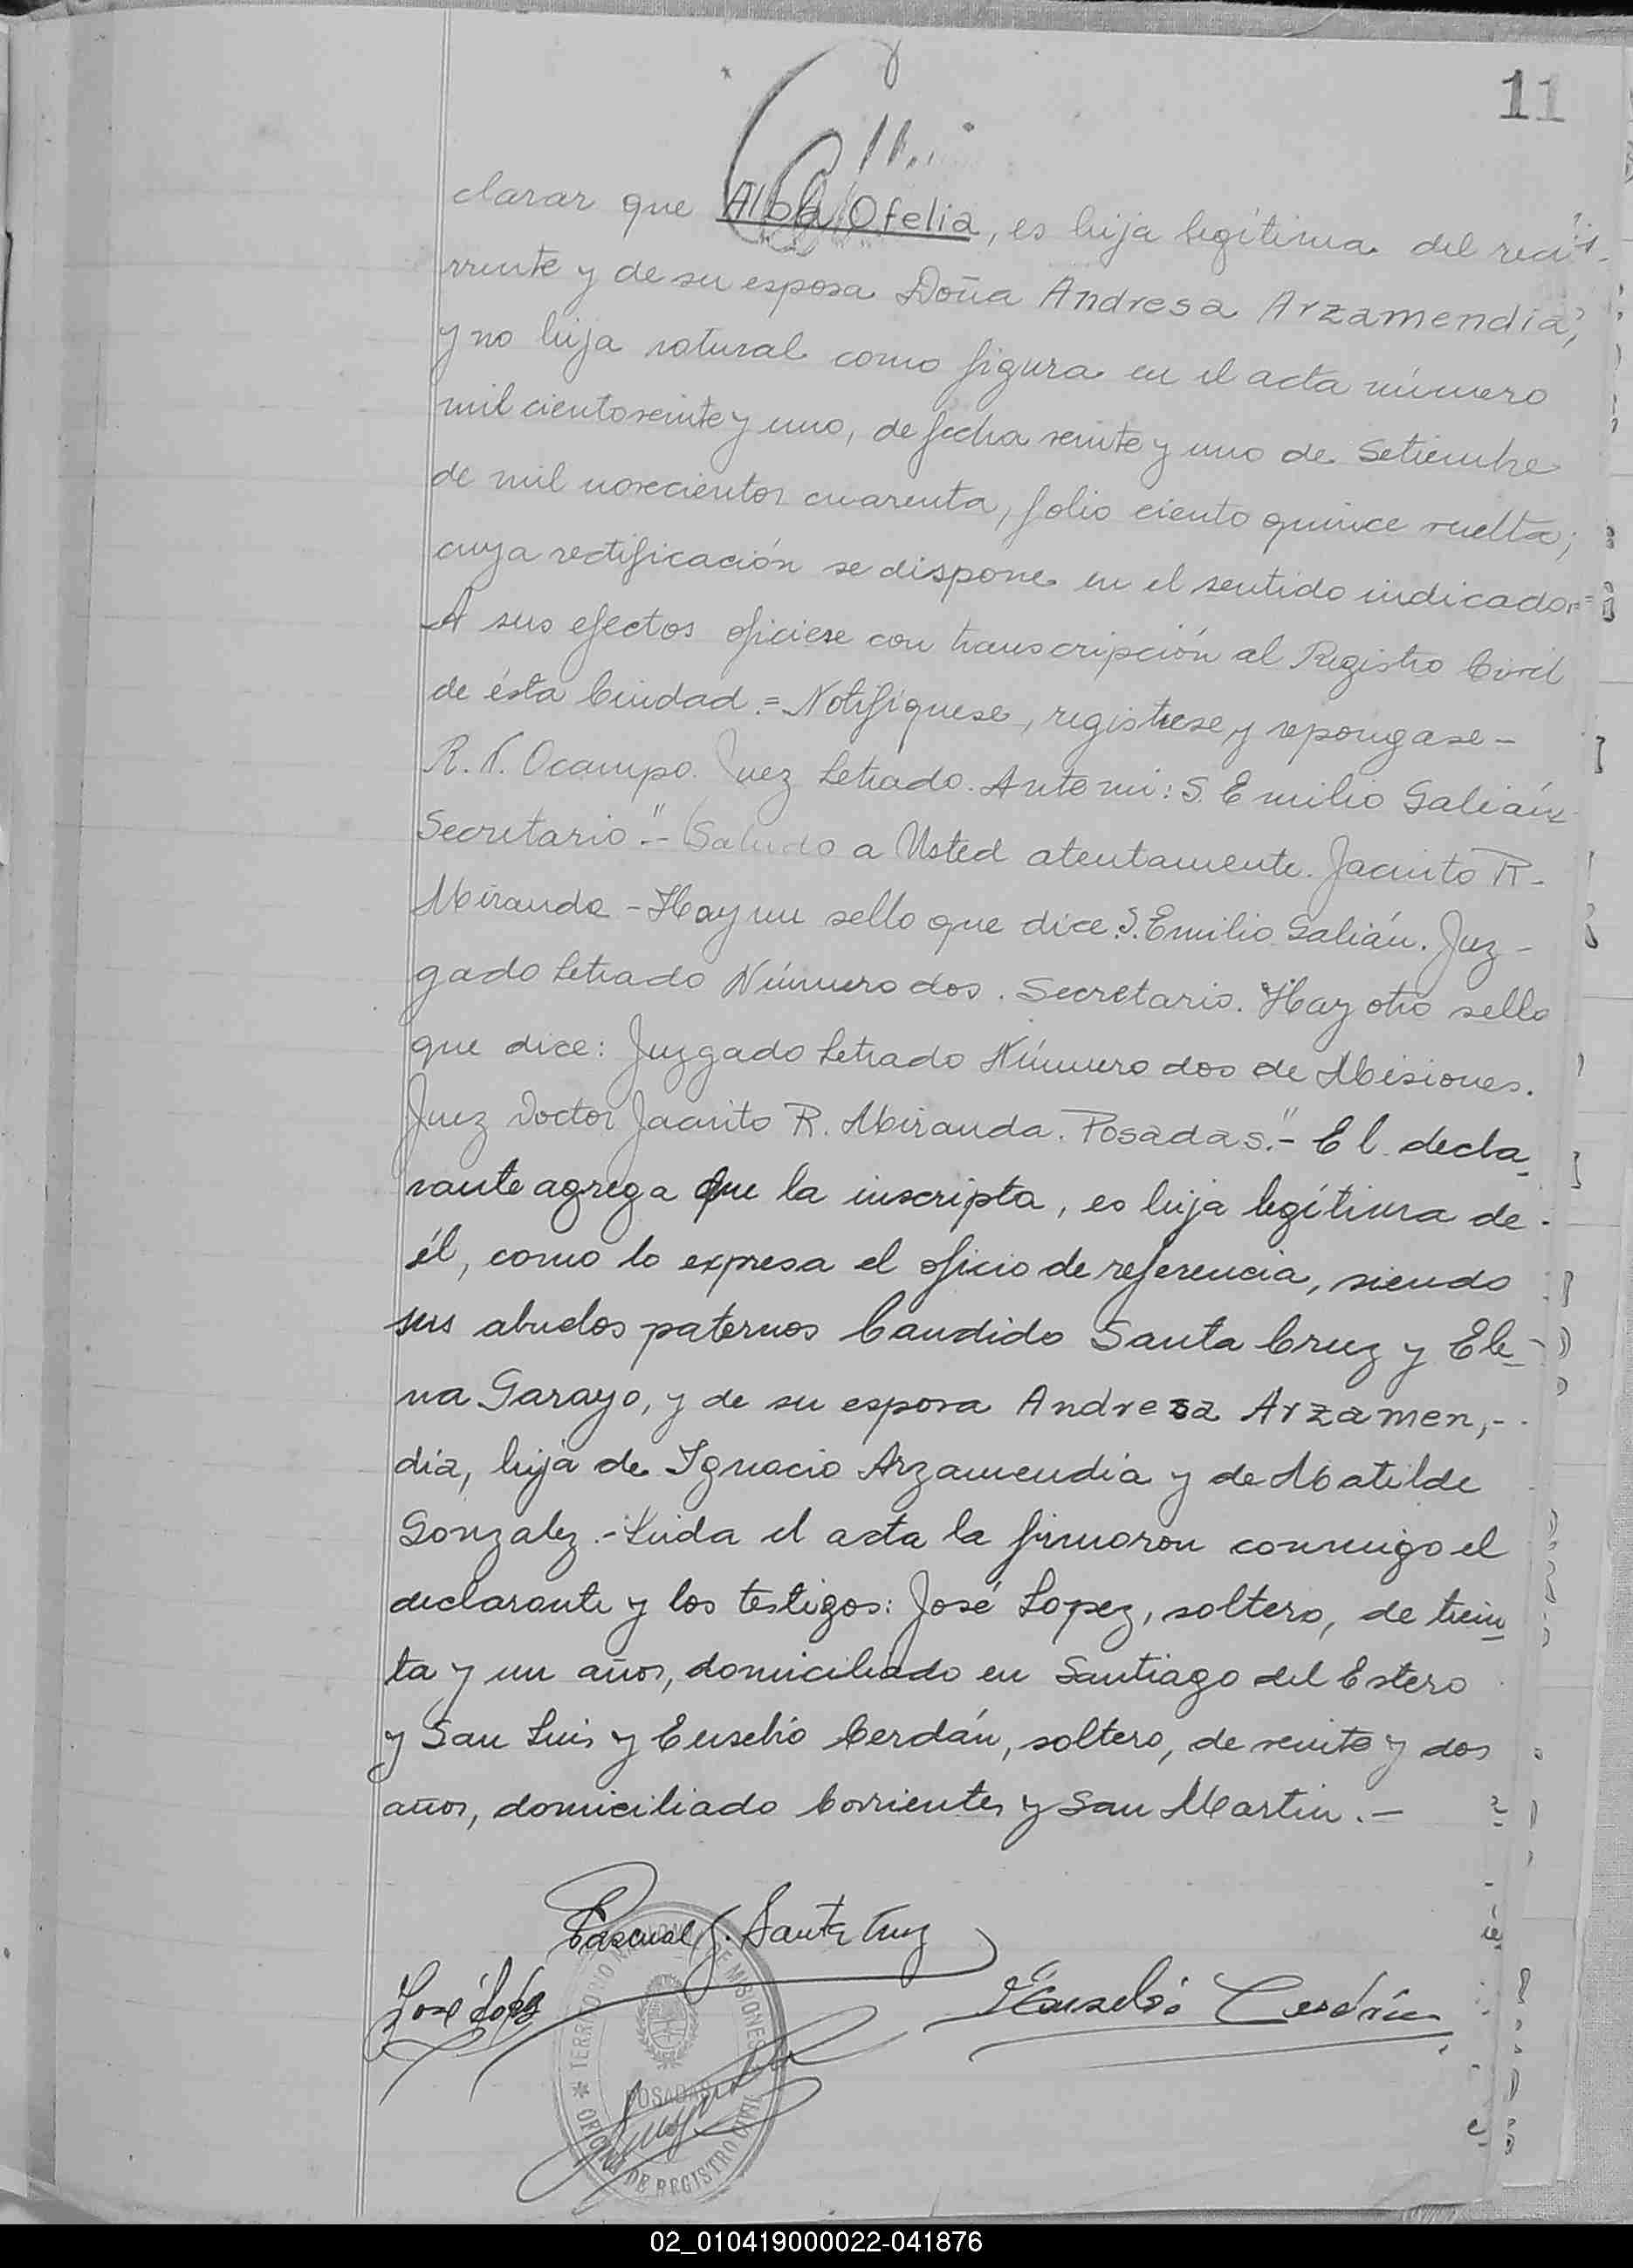 11
11.
clarar que Alba Ofelia, es hija legítima del recu-
rrente y de su esposa Doña Andresa Arzamendia,
y no hija natural como figura en el acta número
mil ciento veinte y uno, de fecha veinte y uno de Setiembre
de mil novecientos cuarenta, folio ciento quince vuelta;
cuya rectificación se dispone en el sentido indicado.=
A sus efectos oficiese con transcripción al Registro Civil
de ésta Ciudad.= Notifíquese, registrese y repongase-
R. Ocampo. Juez Letrado. Ante mi: S. Emilio Galián
Secretario".- Saludo a Usted atentamente. Jacinto R.
Miranda - Hay un sello que dice: S. Emilio Galián. Juz-
gado Letrado Número dos. Secretario. Hay otro sello
que dice: Juzgado Letrado Número dos de Misiones.
Juez Doctor Jacinto R. Miranda. Posadas."- El decla-
rante agrega que la inscripta, es hija legítima de
él, como lo expresa el oficio de referencia, siendo
sus abuelos paternos Candido Santa Cruz y Ele-
na Garayo, y de su esposa Andresa Arzamen,-
dia, hija de Ignacio Arzamendia y de Matilde
Gonzalez.- Leida el acta la firmaron conmigo el
declarante y los testigos: José Lopez, soltero, de trein
ta y un años, domiciliado en Santiago del Estero
y San Luis y Eusebio Cerdán, soltero, de veinte y dos
años, domiciliado Corrientes y San Martin.-
Pascual G. Santa Cruz
José López
Eusebio Cerdán
TERRITORIO NACIONAL DE MISIONES
POSADAS
OFICINA DE REGISTRO CIVIL
02_010419000022-041876